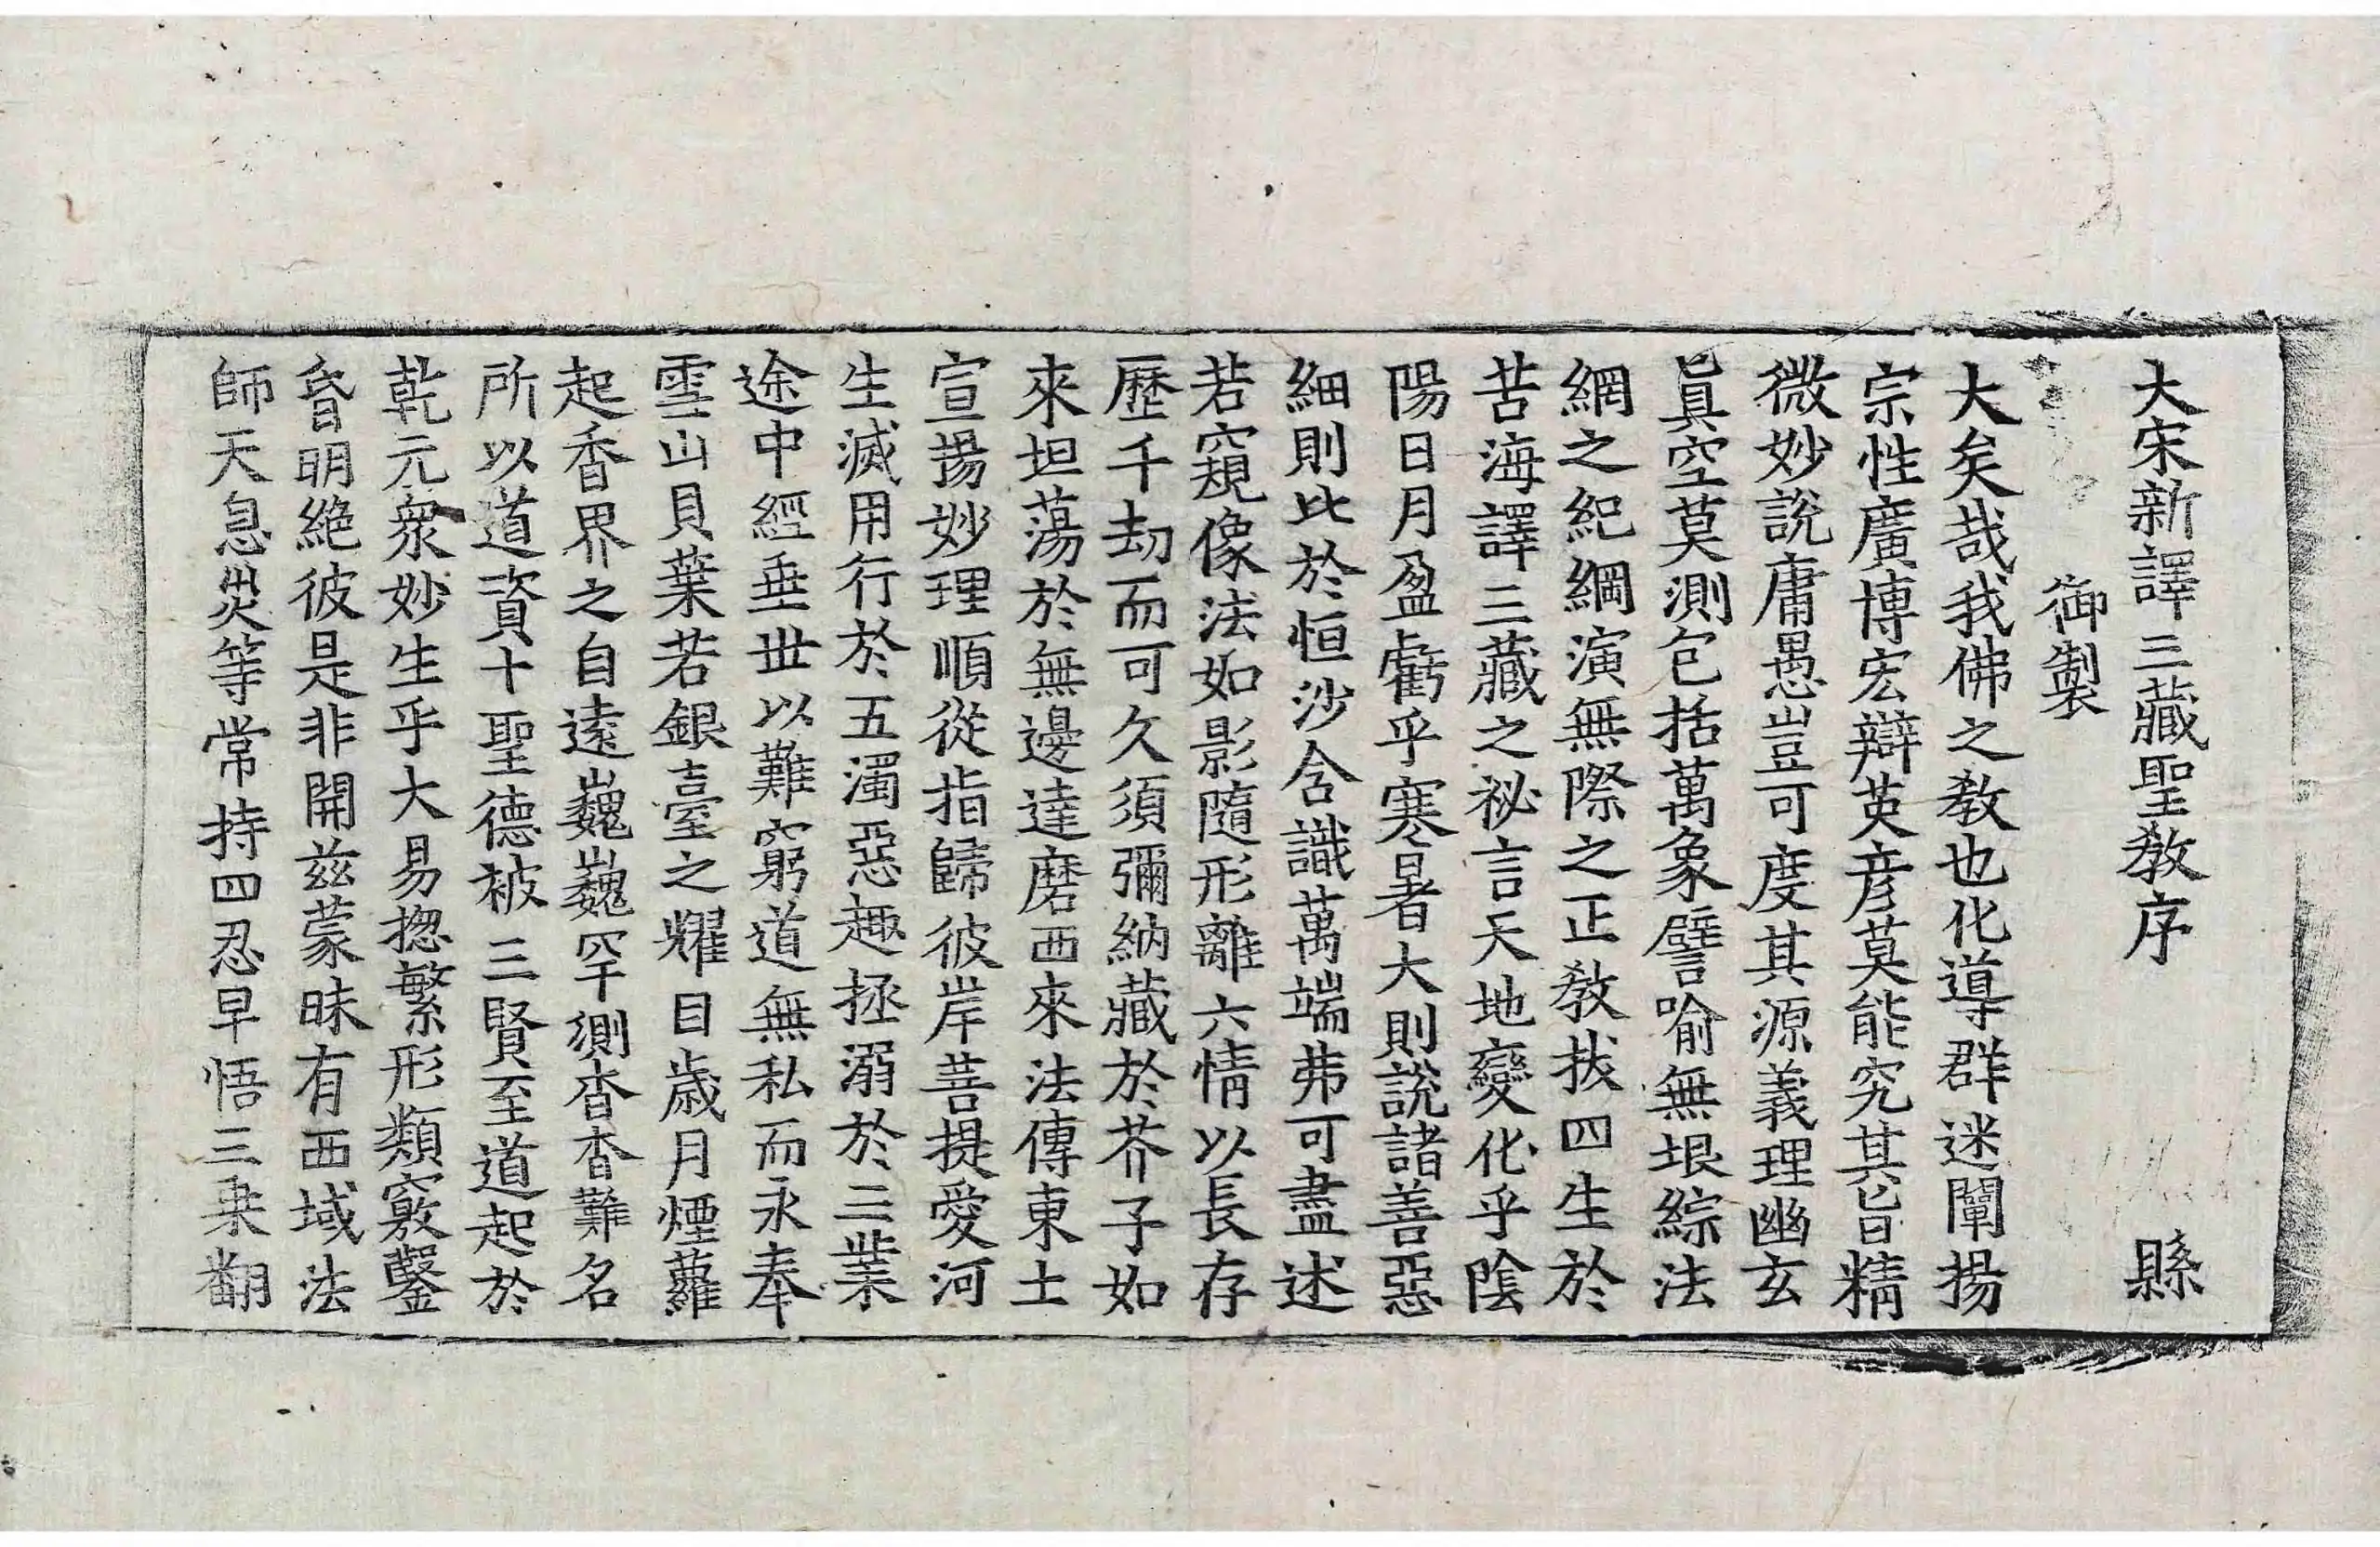 大宋新譯三藏聖教序 縣
御製
大矣哉我佛之教也化導群迷闡揚
宗性廣博宏辯英彦莫能究其旨精
微妙說庸愚豈可度其源義理幽玄
真空莫測包括萬象譬喻無垠綜法
網之紀綱演無際之正教拔四生於
苦海譯三藏之祕言天地變化乎陰
陽日月盈虧乎寒暑大則說諸善惡
細則比於恒沙含識萬端弗可盡述
若窺像法如影隨形離六情以長存
歷千劫而可久須彌納藏於芥子如
來坦蕩於無邊達磨西來法傳東土
宣揚妙理順從指歸彼岸菩提愛河
生滅用行於五濁惡趣拯溺於三業
途中經垂世以難窮道無私而永奉
雪山貝葉若銀臺之耀目歲月煙蘿
起香界之自遠巍巍罕測杳杳難名
所以道資十聖德被三賢至道起於
乾元衆妙生乎大易揔繁形類竅鑿
昏明絶彼是非開兹蒙昧有西域法
師天息災等常持四忍早悟三乘翻